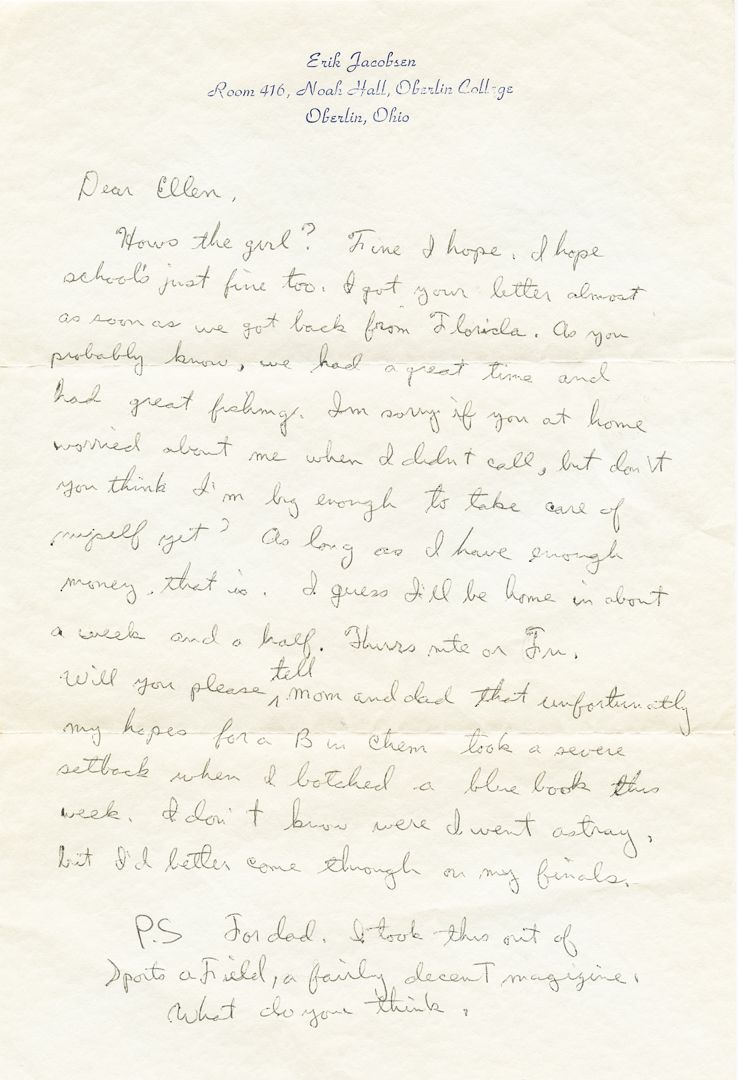 Erik Jacobsen
Room 416, Noah Hall, Oberlin College
Oberlin, Ohio
Dear Ellen,
Hows the girl? Fine I hope. I hope
school's just fine too. I got your letter almost
as soon as we got back from Florida. As you
probably know, we had a great time and
had great fishing. I'm sorry if you at home
worried about me when I didn't call, but don't
you think I'm big enough to take care of
myself yet? As long as I have enough
money, that is. I guess I'll be home in about
a week and a half. Thurs nite or Fri.
Will you please tell mom and dad that unfortunatly
my hopes for a B in Chem took a severe
setback when I botched a blue book this
week. I don't know were I went astray,
but I'd better come through on my finals.
P.S For dad. I took this out of
Sports a Field, a fairly decent magizine.
What do you think.